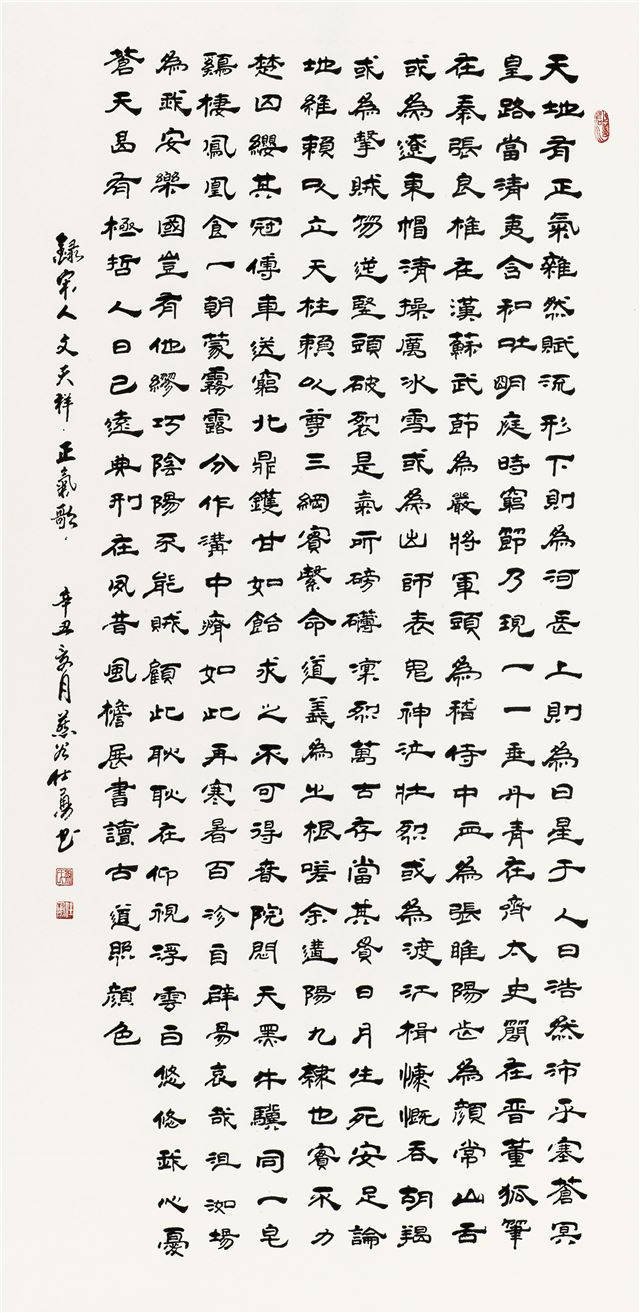 天地有正氣雜然賦流形下則為河岳上則為日星于人曰浩然沛乎塞蒼冥
皇路當清夷含和吐明庭時窮節乃現一一垂丹青在齊太史簡在晉董狐筆
在秦張良椎在漢蘇武節為嚴將軍頭為稽侍中血為張睢陽齒為顏常山舌
或為遼東帽清操厲冰雪或為出師表鬼神泣壯烈或為渡江楫慷慨吞胡羯
或為擊賊笏逆豎頭破裂是氣所磅礴凜烈萬古存當其貫日月生死安足論
地維賴以立天柱賴以尊三綱實繫命道義為之根嗟余遘陽九隸也實不力
楚囚纓其冠傳車送窮北鼎鑊甘如飴求之不可得春院悶天黑牛驥同一皂
鷄棲鳳凰食一朝蒙霧露分作溝中瘠如此再寒暑百沴自辟易哀哉沮洳場
為我安樂國豈有他繆巧陰陽不能賊顧此耿耿在仰視浮雲白悠悠我心憂
蒼天曷有極哲人日已遠典刑在夙昔風檐展書讀古道照顏色
錄宋人文天祥·正氣歌· 辛丑亥月 仕勇书